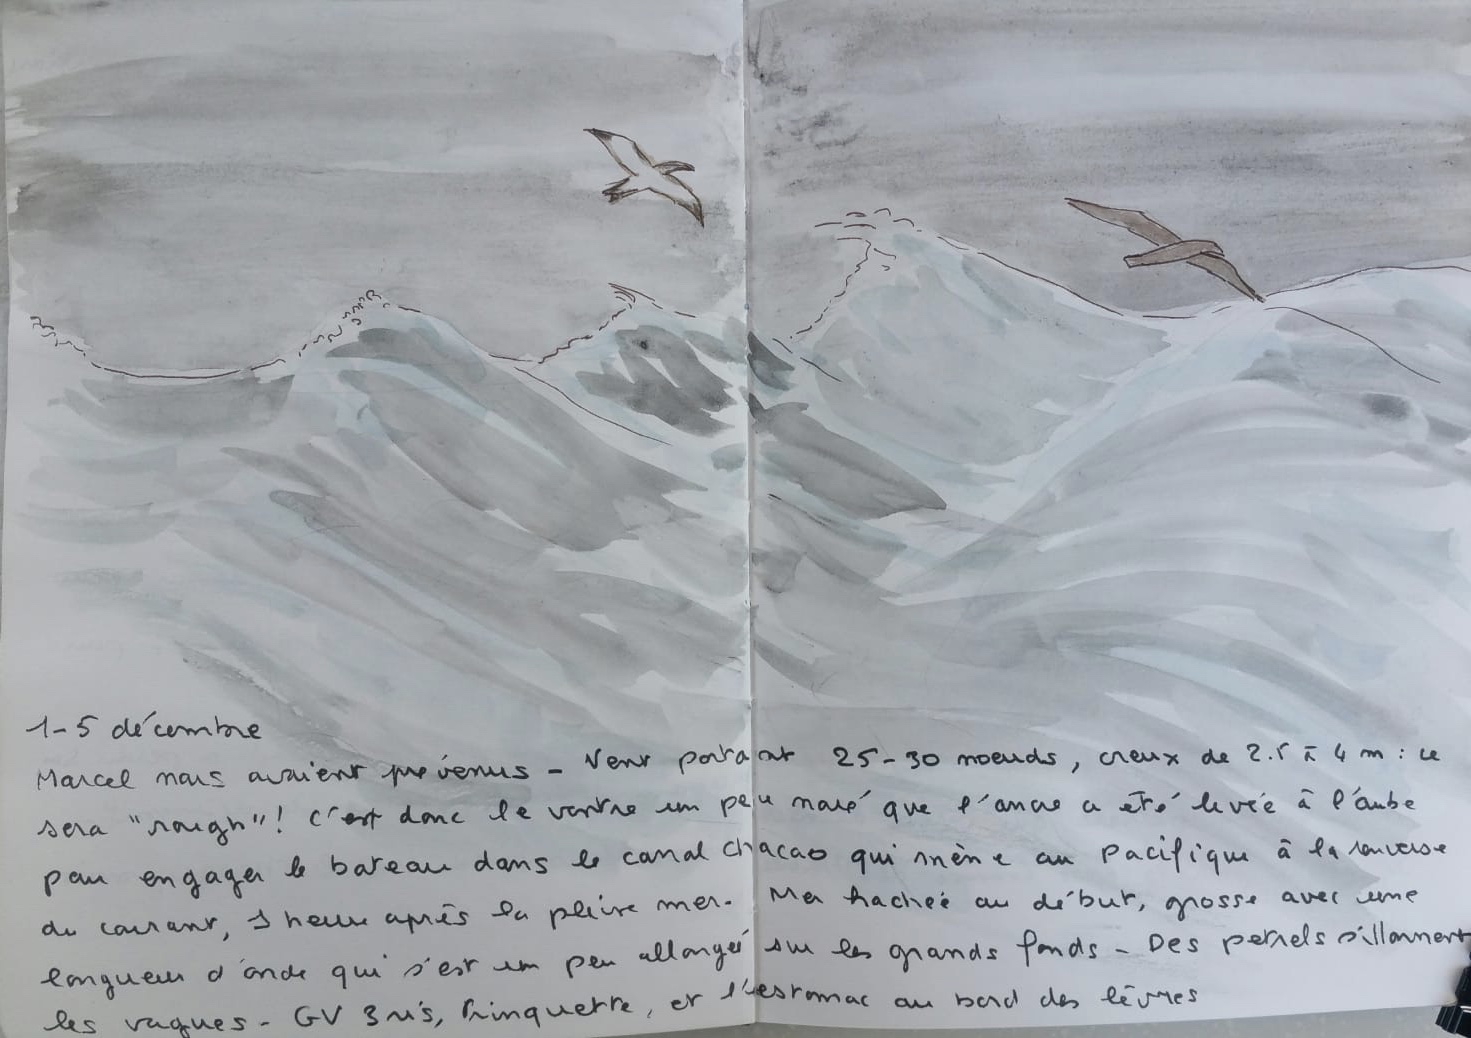 1-5 décembre
Marcel nous avaient prévenus - Vent portant 25-30 noeuds, creux de 2.5 à 4 m : ce
sera "rough"! C'est donc le ventre un peu noué que l'ancre a été levée à l'aube
pour engager le bateau dans le canal Chacao qui mène au Pacifique à la renverse
du courant, 1 heure après la pleine mer. Mer hachée au début, grosse avec une
longueur d'onde qui s'est un peu allongée sur les grands fonds - Des petrels sillonnent
les vagues - GV 3 ris, trinquette, et l'estomac au bord des lèvres